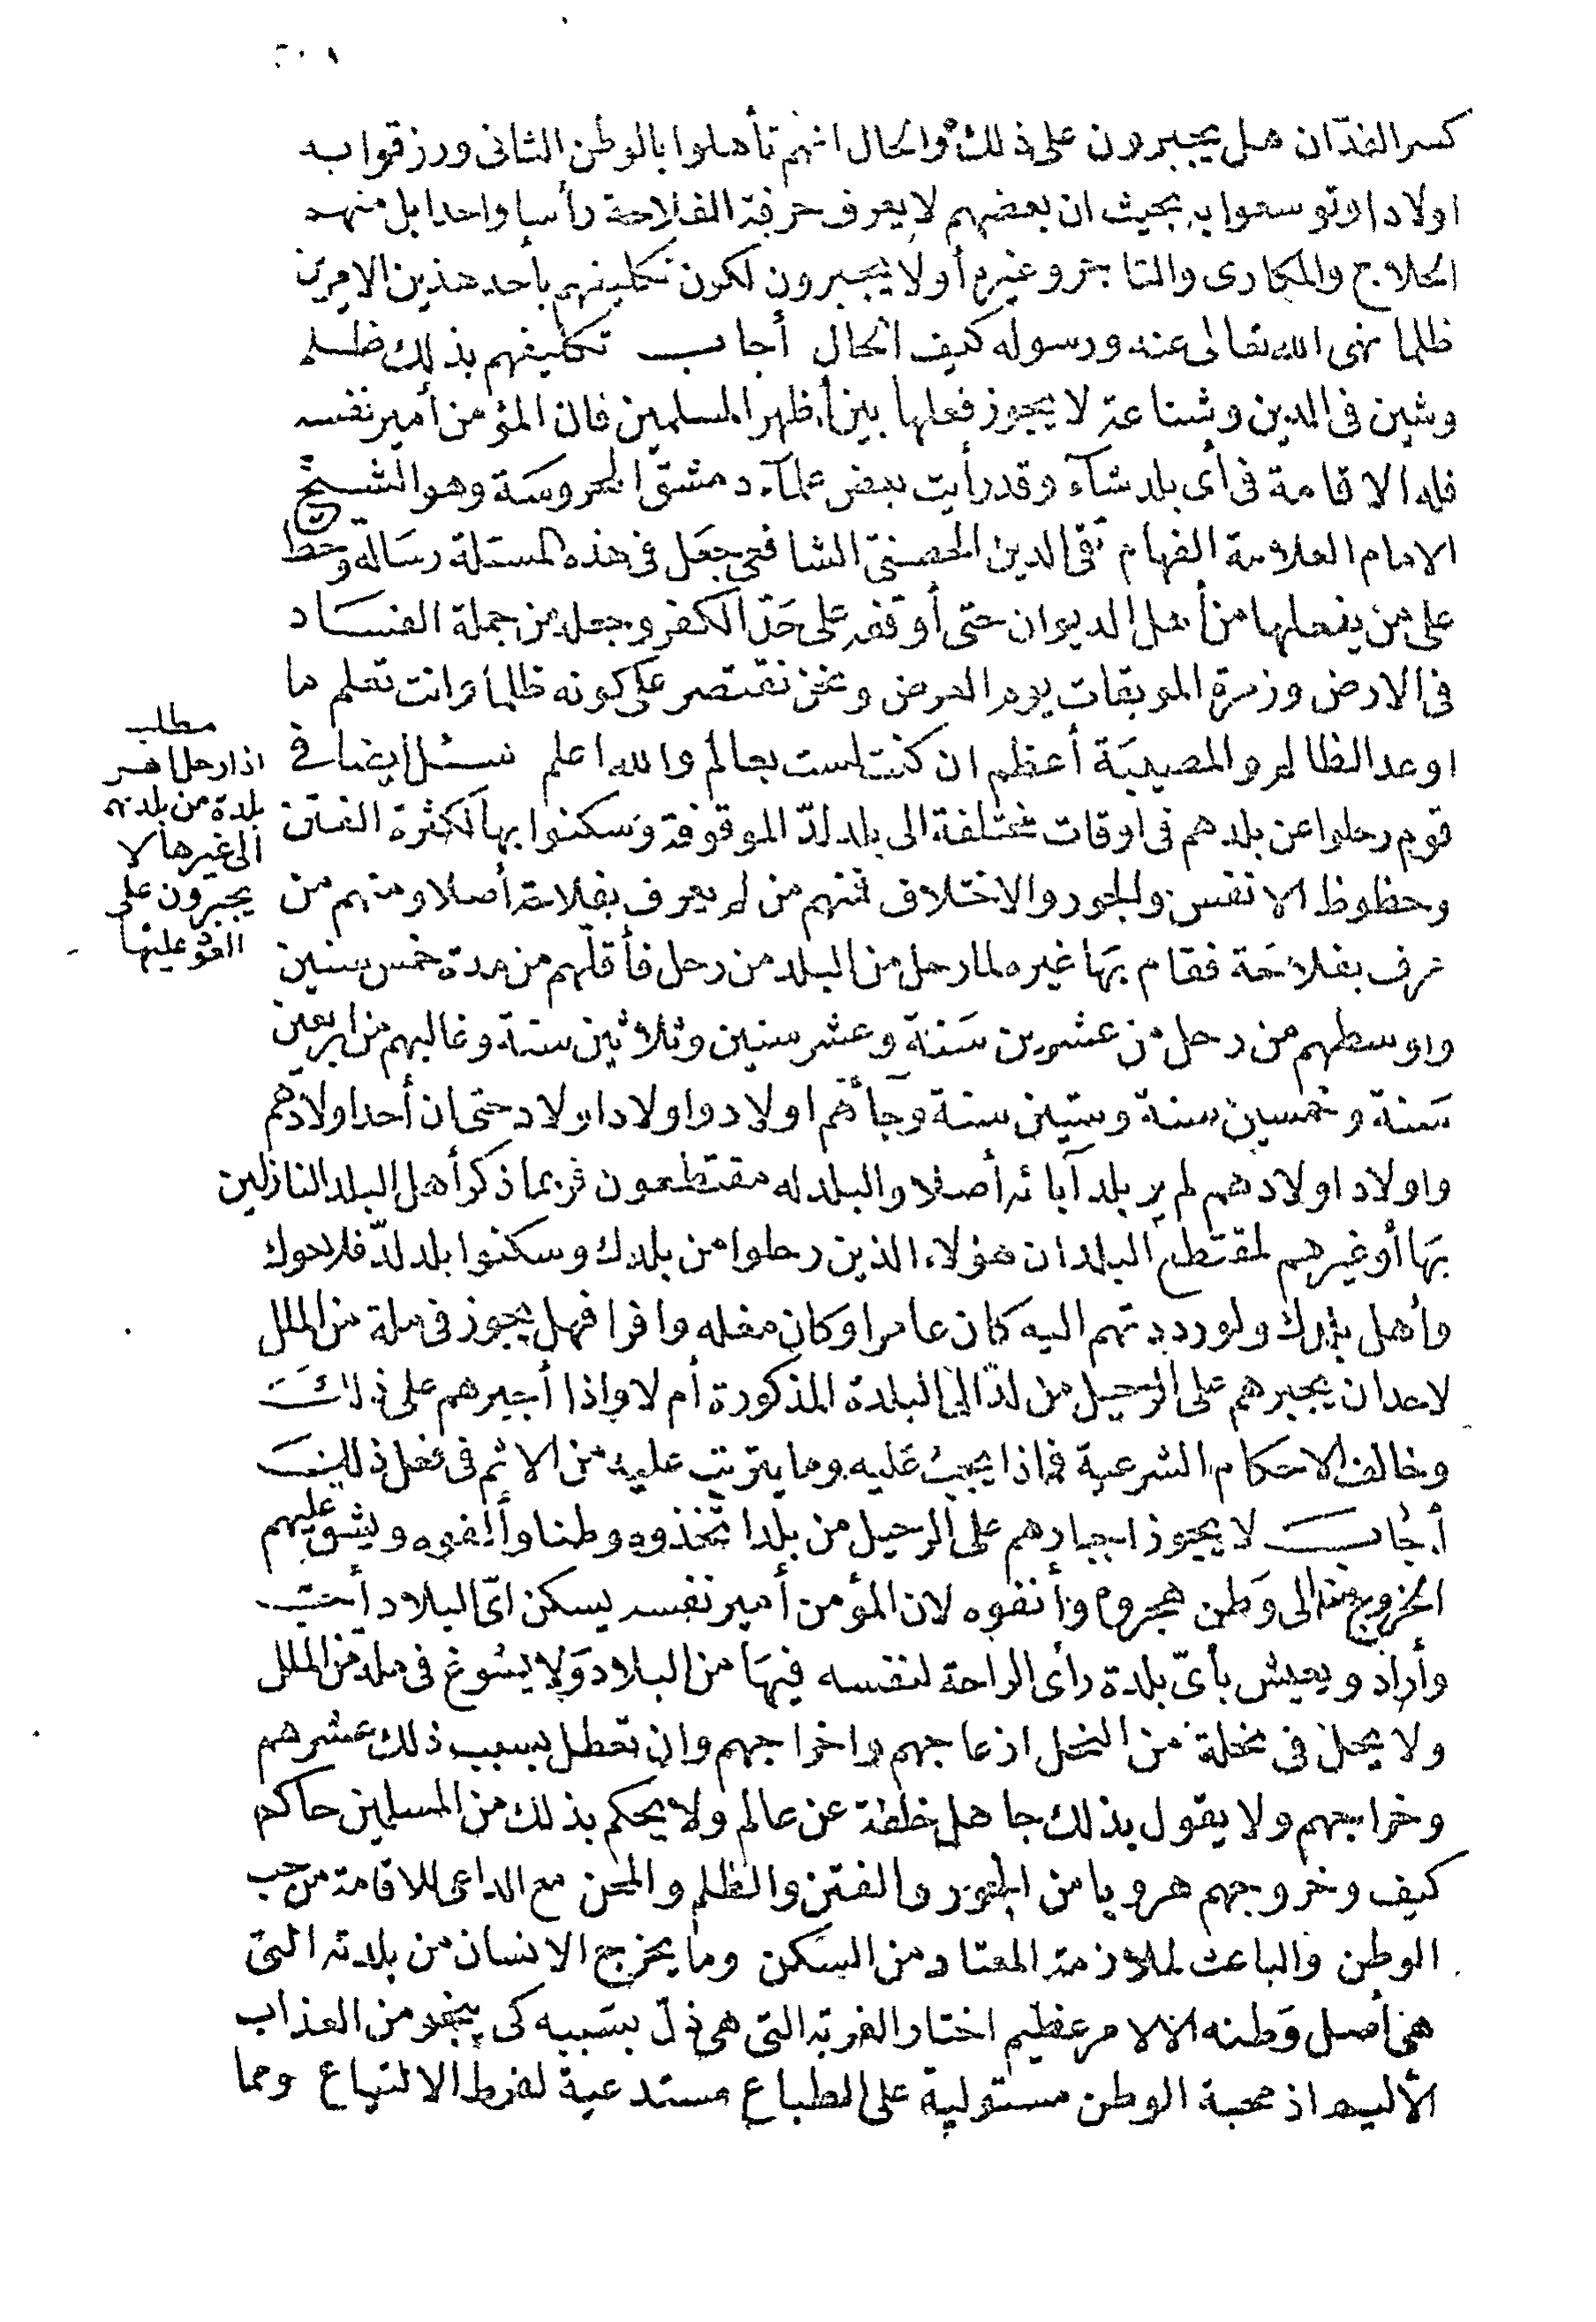 كسر الفدّان هل يجبرون على ذلك والحال انهم تأهلوا بالوطن الثانى ورزقوا به
اولادا وتوسعوا به بحيث ان بعضهم لا يعرف حرفة الفلاحة رأسا واحدا بل منهم
الحلاج والمكارى والتاجر وغيرهم أو لا يجبرون لكون تكليفهم بأحد هذين الامرين
ظلما نهى الله تعالى عنه ورسوله كيف الحال أجاب تكليفهم بذلك ظلم
وشين فى الدين وشناعة لا يجوز فعلها بين أظهر المسلمين فان المؤمن أمير نفسه
فله الاقامة فى أى بلد شآء وقد رأيت بعض علمآء دمشق المحروسة وهو الشيخ
الامام العلامة الفهام تقى الدين الحصنى الشافعى جعل فى هذه المسئلة رسالة وحط
على من يفعلها من أهل الديوان حتى أوقفه على حدّ الكفر وجعله من جملة الفساد
فى الارض وزمرة الموبقات يوم العرض ونحن نقتصر على كونه ظلما وانت تعلم ما
اوعد الظالم والمصيبة أعظم ان كنت لست بعالم والله اعلم سئل ايضا فى
قوم رحلوا عن بلدهم فى اوقات مختلفة الى بلد لدّ الموقوفة وسكنوا بها لكثرة الفتن
وحظوظ الانفس والجور والاختلاف فمنهم من لم يعرف بفلاحة أصلا ومنهم من
عرف بفلاحة فقام بها غيره لما رحل من البلد من رحل فأقلّهم من مدة خمس سنين
واوسطهم من رحل من عشرين سنة وعشر سنين وثلاثين سنة وغالبهم من اربعين
سنة وخمسين سنة وستين سنة وجآهم اولاد واولاد اولاد حتى ان أحد اولادهم
واولاد اولادهم لم ير بلد آبائه أصلا والبلد له مقتطعون فربما ذكر أهل البلد النازلين
بها أو غيرهم لمقتطع البلد ان هؤلاء الذين رحلوا من بلدك وسكنوا بلد لدّ فلاحوك
وأهل بلدك ولو رددتهم اليه كان عامرا وكان مغله وافرا فهل يجوز فى ملة من الملل
لاحد ان يجبرهم على الرحيل من لدّ الى البلدة المذكورة أم لا واذا أجبرهم على ذلك
وخالف الاحكام الشرعية فماذا يجب عليه وما يترتب عليه من الاثم فى فعل ذلك
أجاب لا يجوز اجبارهم على الرحيل من بلد اتخذوه وطنا وألفوه ويشق عليهم
الخروج منه الى وطن هجروه وأنفوه لان المؤمن أمير نفسه يسكن اىّ البلاد أحبّ
وأراد ويعيش بأىّ بلدة رأى الراحة لنفسه فيها من البلاد ولا يسوغ فى ملة من الملل
ولا يحل فى نحلة من النحل ازعاجهم واخراجهم وان تعطل بسبب ذلك عشرهم
وخراجهم ولا يقول بذلك جاهل خلفة عن عالم ولا يحكم بذلك من المسلمين حاكم
كيف وخروجهم هروبا من الجور والفتن والظلم والمحن مع الداعى للاقامة من حب
الوطن والباعث لملازمة المعتاد من السكن وما يخرج الانسان من بلدته التى
هى أصل وطنه الا لامر عظيم اختار الغربة التى هى ذلّ بسببه كى ينجو من العذاب
الأليم اذ محبة الوطن مستولية على الطباع مستدعية لفرط الالتياع ومما
مطلب
اذا رحل اهل
بلدة من بلدتهم
الى غيرها لا
يجبرون على
العود عليها